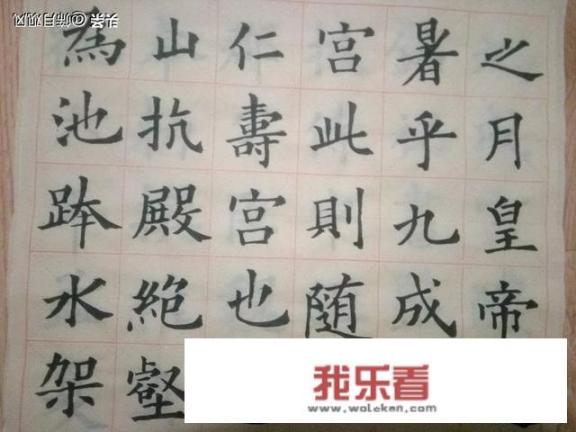 之月皇帝
暑乎九成
宫此則随
仁壽宫也
山抗殿絶壑
為池跨水架
我乐看
www.woleken.com